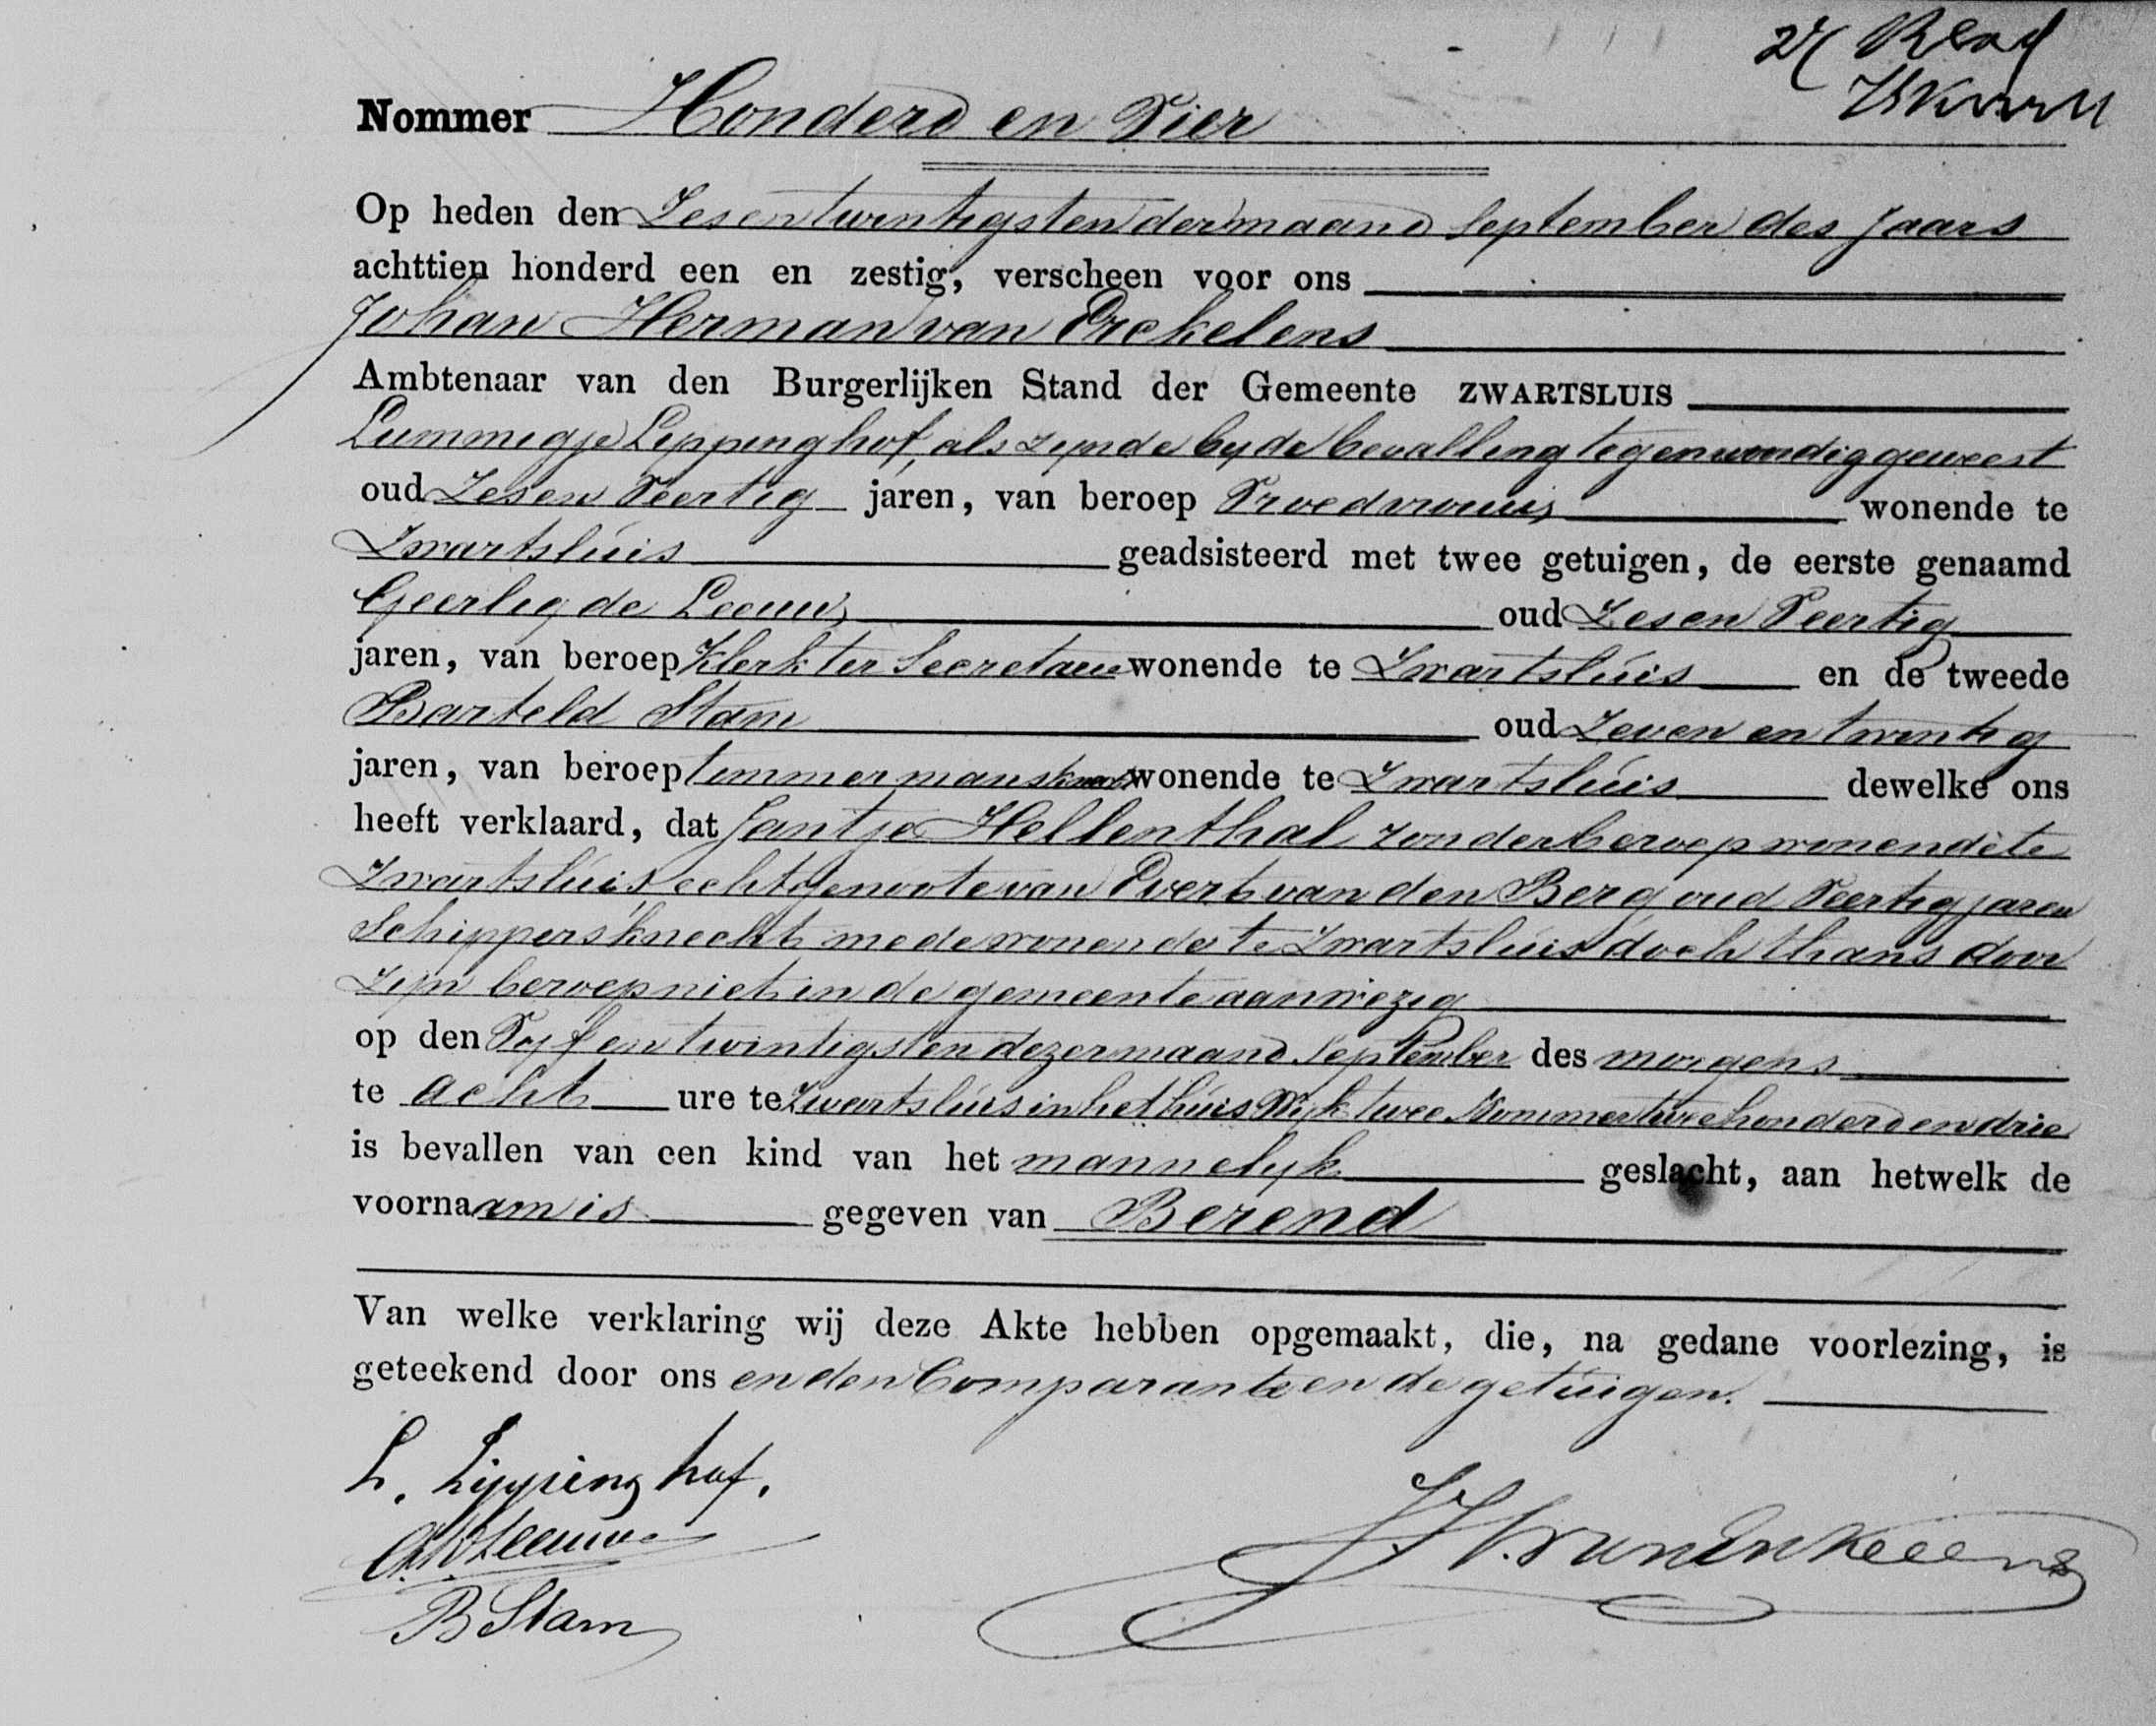 2e Blad
Nommer Honderd en Vier
Op heden den Zesentwintigsten der maand September des jaars
achttien honderd een en zestig, verscheen voor ons
Johan Herman van Erckelens
Ambtenaar van den Burgerlijken Stand der Gemeente ZWARTSLUIS
Lummigje Lippinghof, als zijnde bij de bevalling tegenwoordig geweest
oud Zes en Veertig jaren, van beroep Vroedvrouw wonende te
Zwartsluis geadsisteerd met twee getuigen, de eerste genaamd
Geerlig de Leeuw oud Zes en Veertig
jaren, van beroep Klerk ter Secretarie wonende te Zwartsluis en de tweede
Barteld Stam oud Zeven en twintig
jaren, van beroep timmermansknecht wonende te Zwartsluis dewelke ons
heeft verklaard, dat Jantje Hellenthal zonder beroep wonende te
Zwartsluis, echtgenoote van Evert van den Berg oud Veertig jaren
Schippersknecht mede wonende te Zwartsluis doch thans door
zijn beroep niet in de gemeente aanwezig
op den Vijf en twintigsten dezer maand September des morgens
te acht ure te Zwartsluis in het huis Wijk twee Nommer twee honderd en drie
is bevallen van een kind van het mannelijk geslacht, aan hetwelk de
voornaam is gegeven van Berend
Van welke verklaring wij deze Akte hebben opgemaakt, die, na gedane voorlezing, is
geteekend door ons en den Comparante en de getuigen.
L. Lippinghof.
G. de Leeuw
B Stam